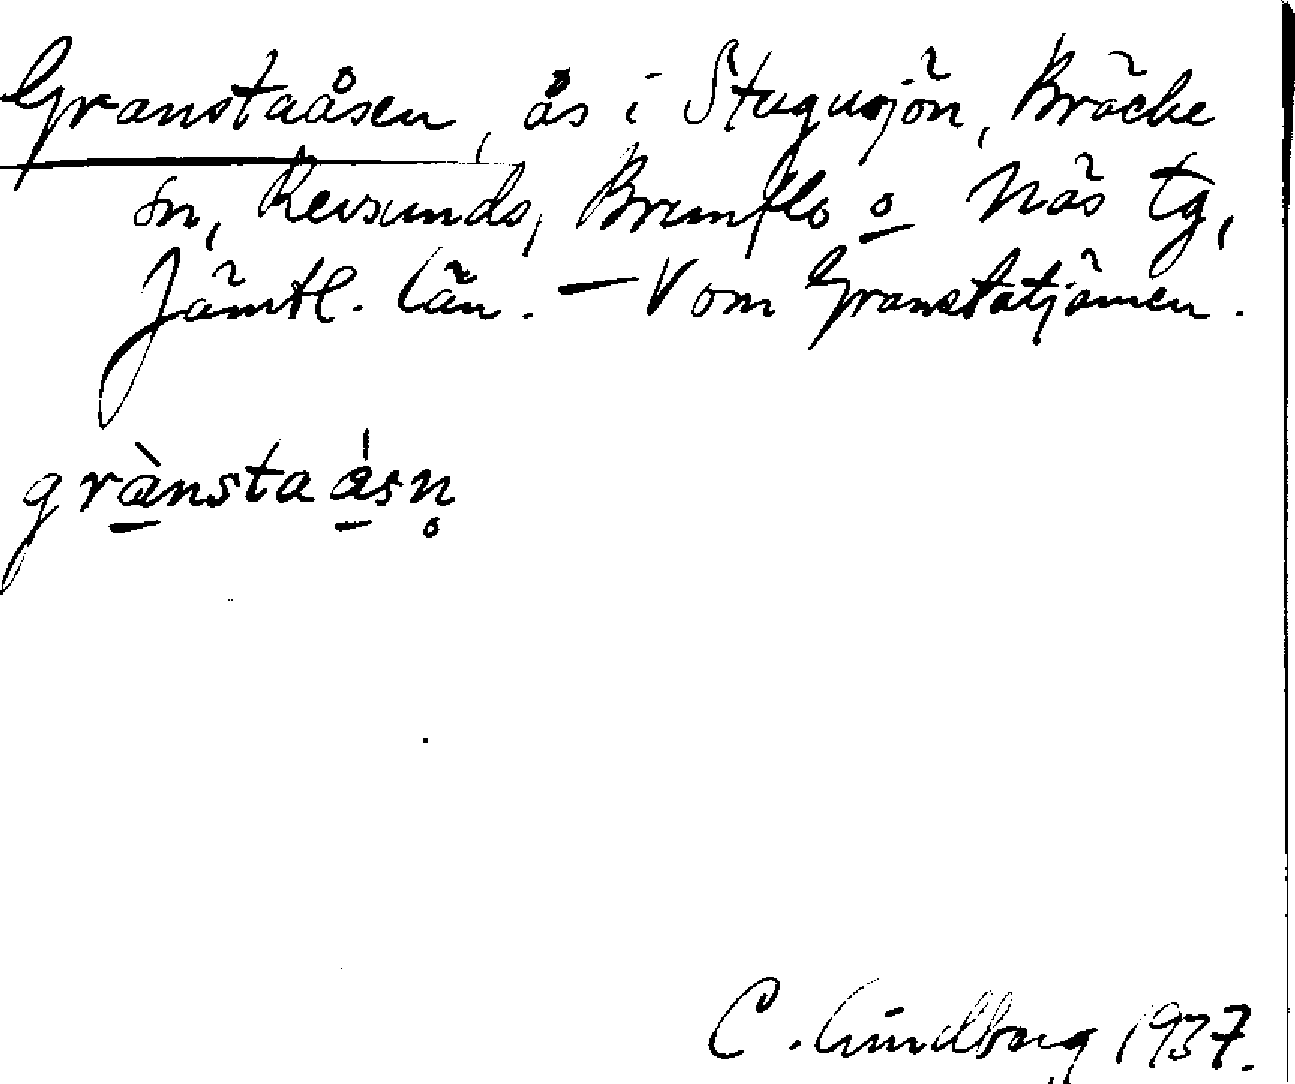 Granstaåsen, ås i Stugusjön, Bräcke
sn, Revsunds, Brunflo o Näs tg,
Jämtl. län. – V om Granstatjärnen.
grànstaásn̥
C. Lindberg 1937.